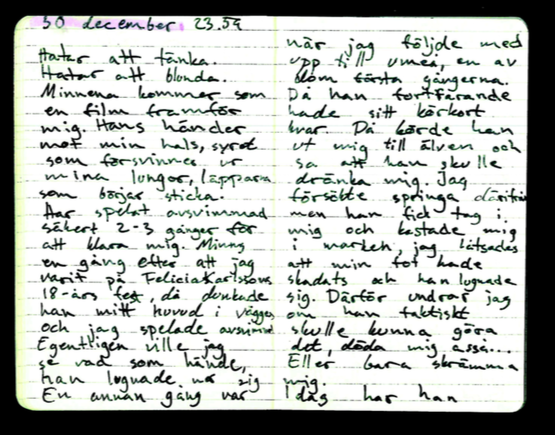 30 december 23.59
Hatar att tänka.
Hatar att blunda.
Minnena kommer som
en film framför
mig. Hans händer
mot min hals, syret
som försvinner ur
mina lungor, läpparna
som börjar sticka.
Har spelat avsvimmad
säkert 2-3 gånger för
att klara mig. Minns
en gång efter att jag
varit på Felicia Karlssons
18-års fest, då dunkade
han mitt huvud i väggen
och jag spelade avsvimmad
Egentligen ville jag
se vad som hände,
han lugnade ner sig
En annan gång var
när jag följde med
upp till Umeå, en av
dom första gångerna.
Då han fortfarande
hade sitt körkort
kvar. Då körde han
ut mig till älven och
sa att han skulle
dränka mig. Jag
försökte springa därifrån
men han fick tag i
mig och kastade mig
i marken, jag låtsades
att min fot hade
skadats och han lugnade
sig. Därför undrar jag
om han faktiskt
skulle kunna göra
det, döda mig asså...
Eller bara skrämma
mig.
Idag har han